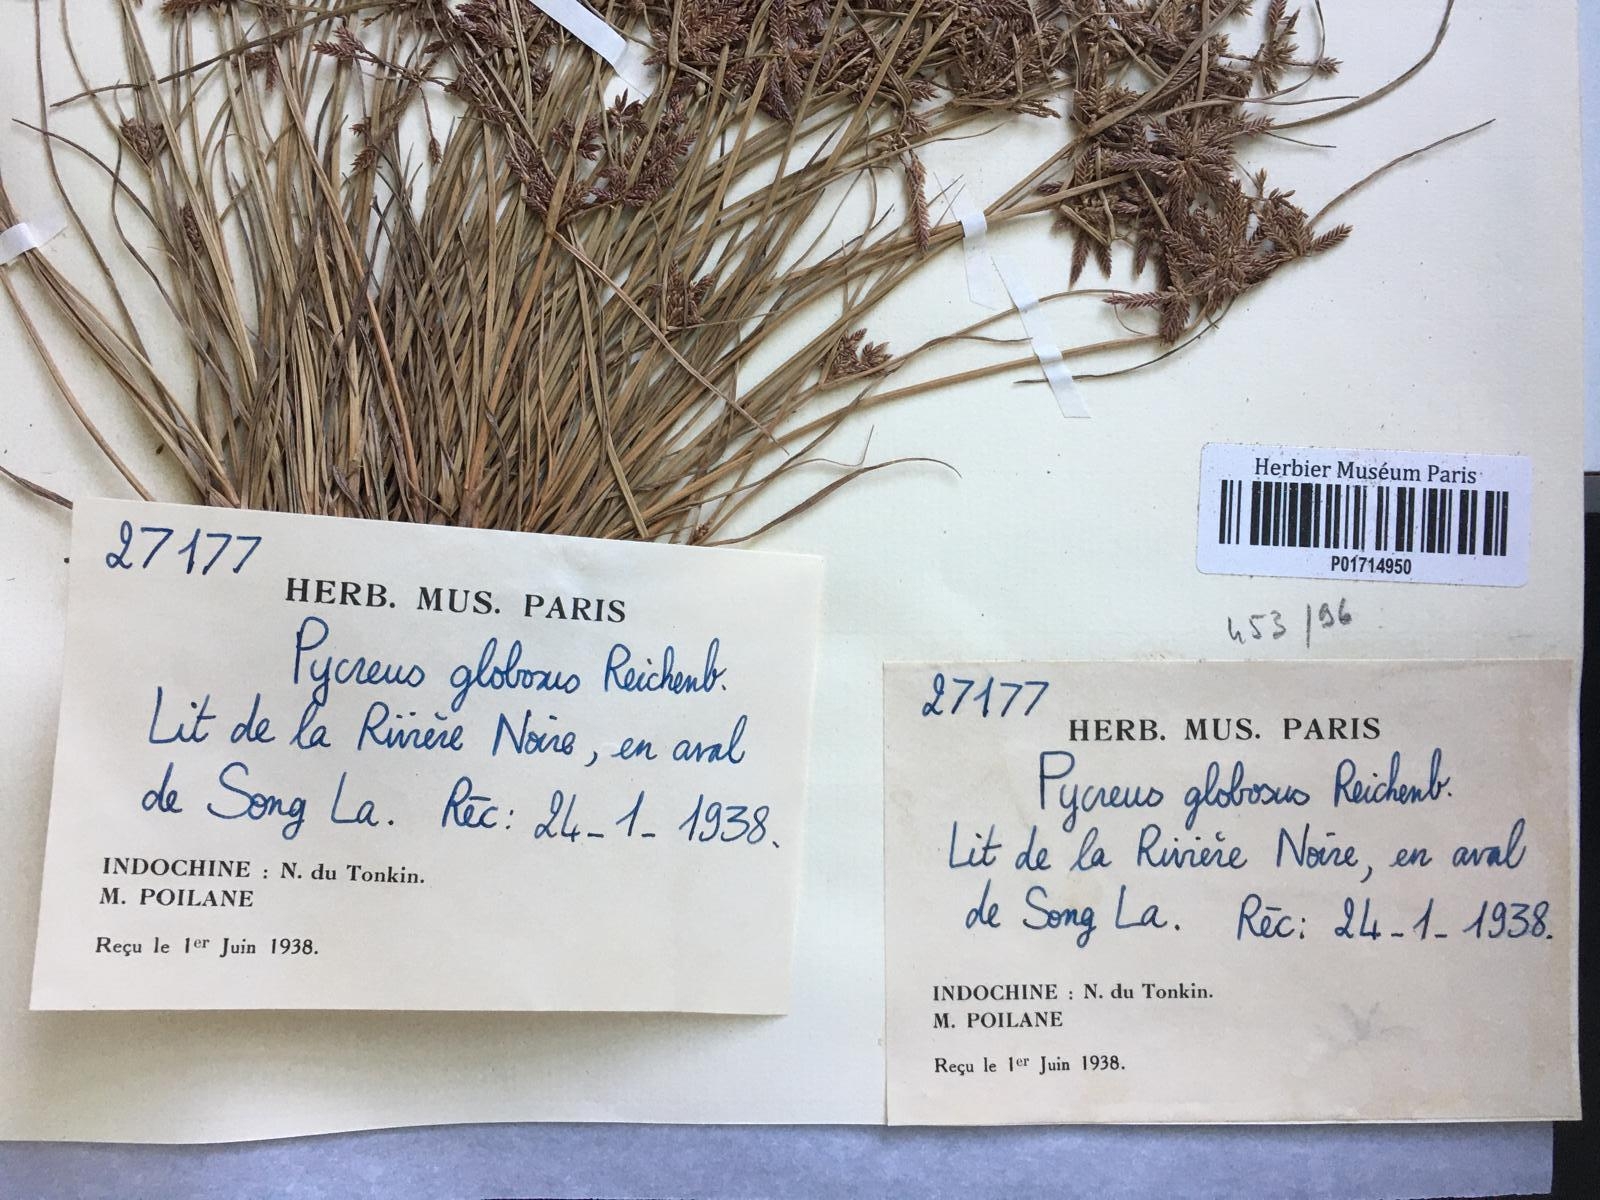 Herbier Muséum Paris
P01714950
453/96
27177
HERB. MUS. PARIS
Pycreus globosus Reichenb.
Lit de la Rivière Noire, en aval
de Song La. Réc: 24-1-1938.
INDOCHINE : N. du Tonkin.
M. POILANE
Reçu le 1er Juin 1938.
27177
HERB. MUS. PARIS
Pycreus globosus Reichenb.
Lit de la Rivière Noire, en aval
de Song La. Réc: 24-1-1938.
INDOCHINE : N. du Tonkin.
M. POILANE
Reçu le 1er Juin 1938.